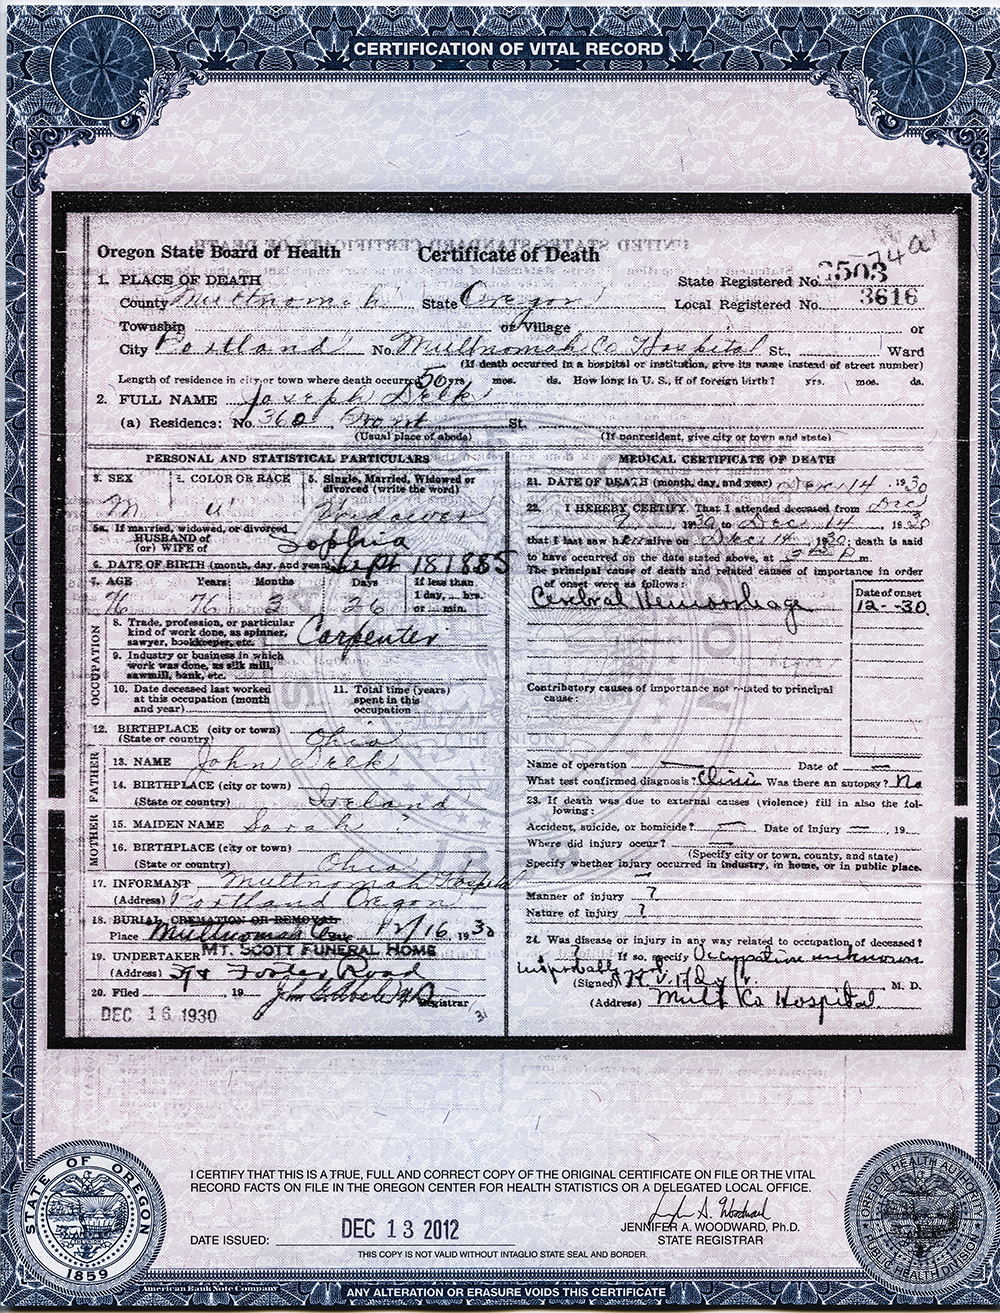 CERTIFICATION OF VITAL RECORD
UNITED STATES STANDARD CERTIFICATE OF DEATH
Oregon State Board of Health Certificate of Death 74a
1. PLACE OF DEATH State Registered No. 3503
County Multnomah State Oregon Local Registered No. 3616
Township or Village or
City Portland No. Multnomah Co Hospital St., Ward
(If death occurred in a hospital or institution, give its name instead of street number)
Length of residence in city or town where death occurred 50 yrs. mos. ds. How long in U. S., if of foreign birth? yrs. mos. ds.
2. FULL NAME Joseph Delk
(a) Residence: No. 360 Front St.
(Usual place of abode) (If nonresident, give city or town and state)
PERSONAL AND STATISTICAL PARTICULARS
3. SEX 4. COLOR OR RACE 5. Single, Married, Widowed or
divorced (write the word)
M W Widower
5a. If married, widowed, or divorced
HUSBAND of
(or) WIFE of Sophia
6. DATE OF BIRTH (month, day, and year) Sept 18 1885
7. AGE Years Months Days If less than
1 day, hrs.
or min.
76 76 2 26
OCCUPATION
8. Trade, profession, or particular
kind of work done, as spinner,
sawyer, bookkeeper, etc. Carpenter
9. Industry or business in which
work was done, as silk mill,
sawmill, bank, etc.
10. Date deceased last worked
at this occupation (month
and year)
11. Total time (years)
spent in this
occupation
12. BIRTHPLACE (city or town)
(State or country) Ohio
FATHER
13. NAME John Delk
14. BIRTHPLACE (city or town)
(State or country) Ireland
MOTHER
15. MAIDEN NAME Sarah ?
16. BIRTHPLACE (city or town)
(State or country) Ohio
17. INFORMANT Multnomah Hospital
(Address) Portland Oregon
18. BURIAL CREMATION OR REMOVAL
Place Multnomah Co Date 12/16 1930
19. UNDERTAKER MT. SCOTT FUNERAL HOME
(Address) Foster Road
20. Filed , 19 Registrar
DEC 16 1930 31
MEDICAL CERTIFICATE OF DEATH
21. DATE OF DEATH (month, day, and year) Dec 14 , 1930
22. I HEREBY CERTIFY, That I attended deceased from Dec
1930 to Dec 14 , 1930
that I last saw h im alive on Dec 14 , 1930; death is said
to have occurred on the date stated above, at P m.
The principal cause of death and related causes of importance in order
of onset were as follows:
Date of onset
Cerebral Hemorrhage 12--30
Contributory causes of importance not related to principal
cause:
Name of operation — Date of —
What test confirmed diagnosis? Clinic Was there an autopsy? No
23. If death was due to external causes (violence) fill in also the fol-
lowing:
Accident, suicide, or homicide? — Date of injury — , 19
Where did injury occur? —
(Specify city or town, county, and state)
Specify whether injury occurred in industry, in home, or in public place.
—
Manner of injury ?
Nature of injury ?
24. Was disease or injury in any way related to occupation of deceased?
? If so, specify Occupation unknown
(Signed) M. D.
(Address) Mult Co Hospital
I CERTIFY THAT THIS IS A TRUE, FULL AND CORRECT COPY OF THE ORIGINAL CERTIFICATE ON FILE OR THE VITAL
RECORD FACTS ON FILE IN THE OREGON CENTER FOR HEALTH STATISTICS OR A DELEGATED LOCAL OFFICE.
DATE ISSUED: DEC 13 2012
JENNIFER A. WOODWARD, Ph.D.
STATE REGISTRAR
THIS COPY IS NOT VALID WITHOUT INTAGLIO STATE SEAL AND BORDER.
STATE OF OREGON
1859
OREGON HEALTH AUTHORITY
PUBLIC HEALTH DIVISION
American Bank Note Company
ANY ALTERATION OR ERASURE VOIDS THIS CERTIFICATE